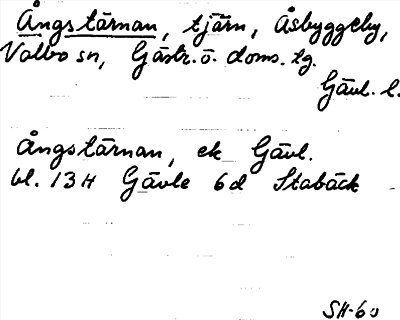 Ångstärnan, tjärn, Åsbyggeby,
Valbo sn, Gästr. ö. doms. tg.
Gävl. l.
Ångstärnan, ek Gävl.
bl. 13H Gävle 6d Stabäck
SH-60